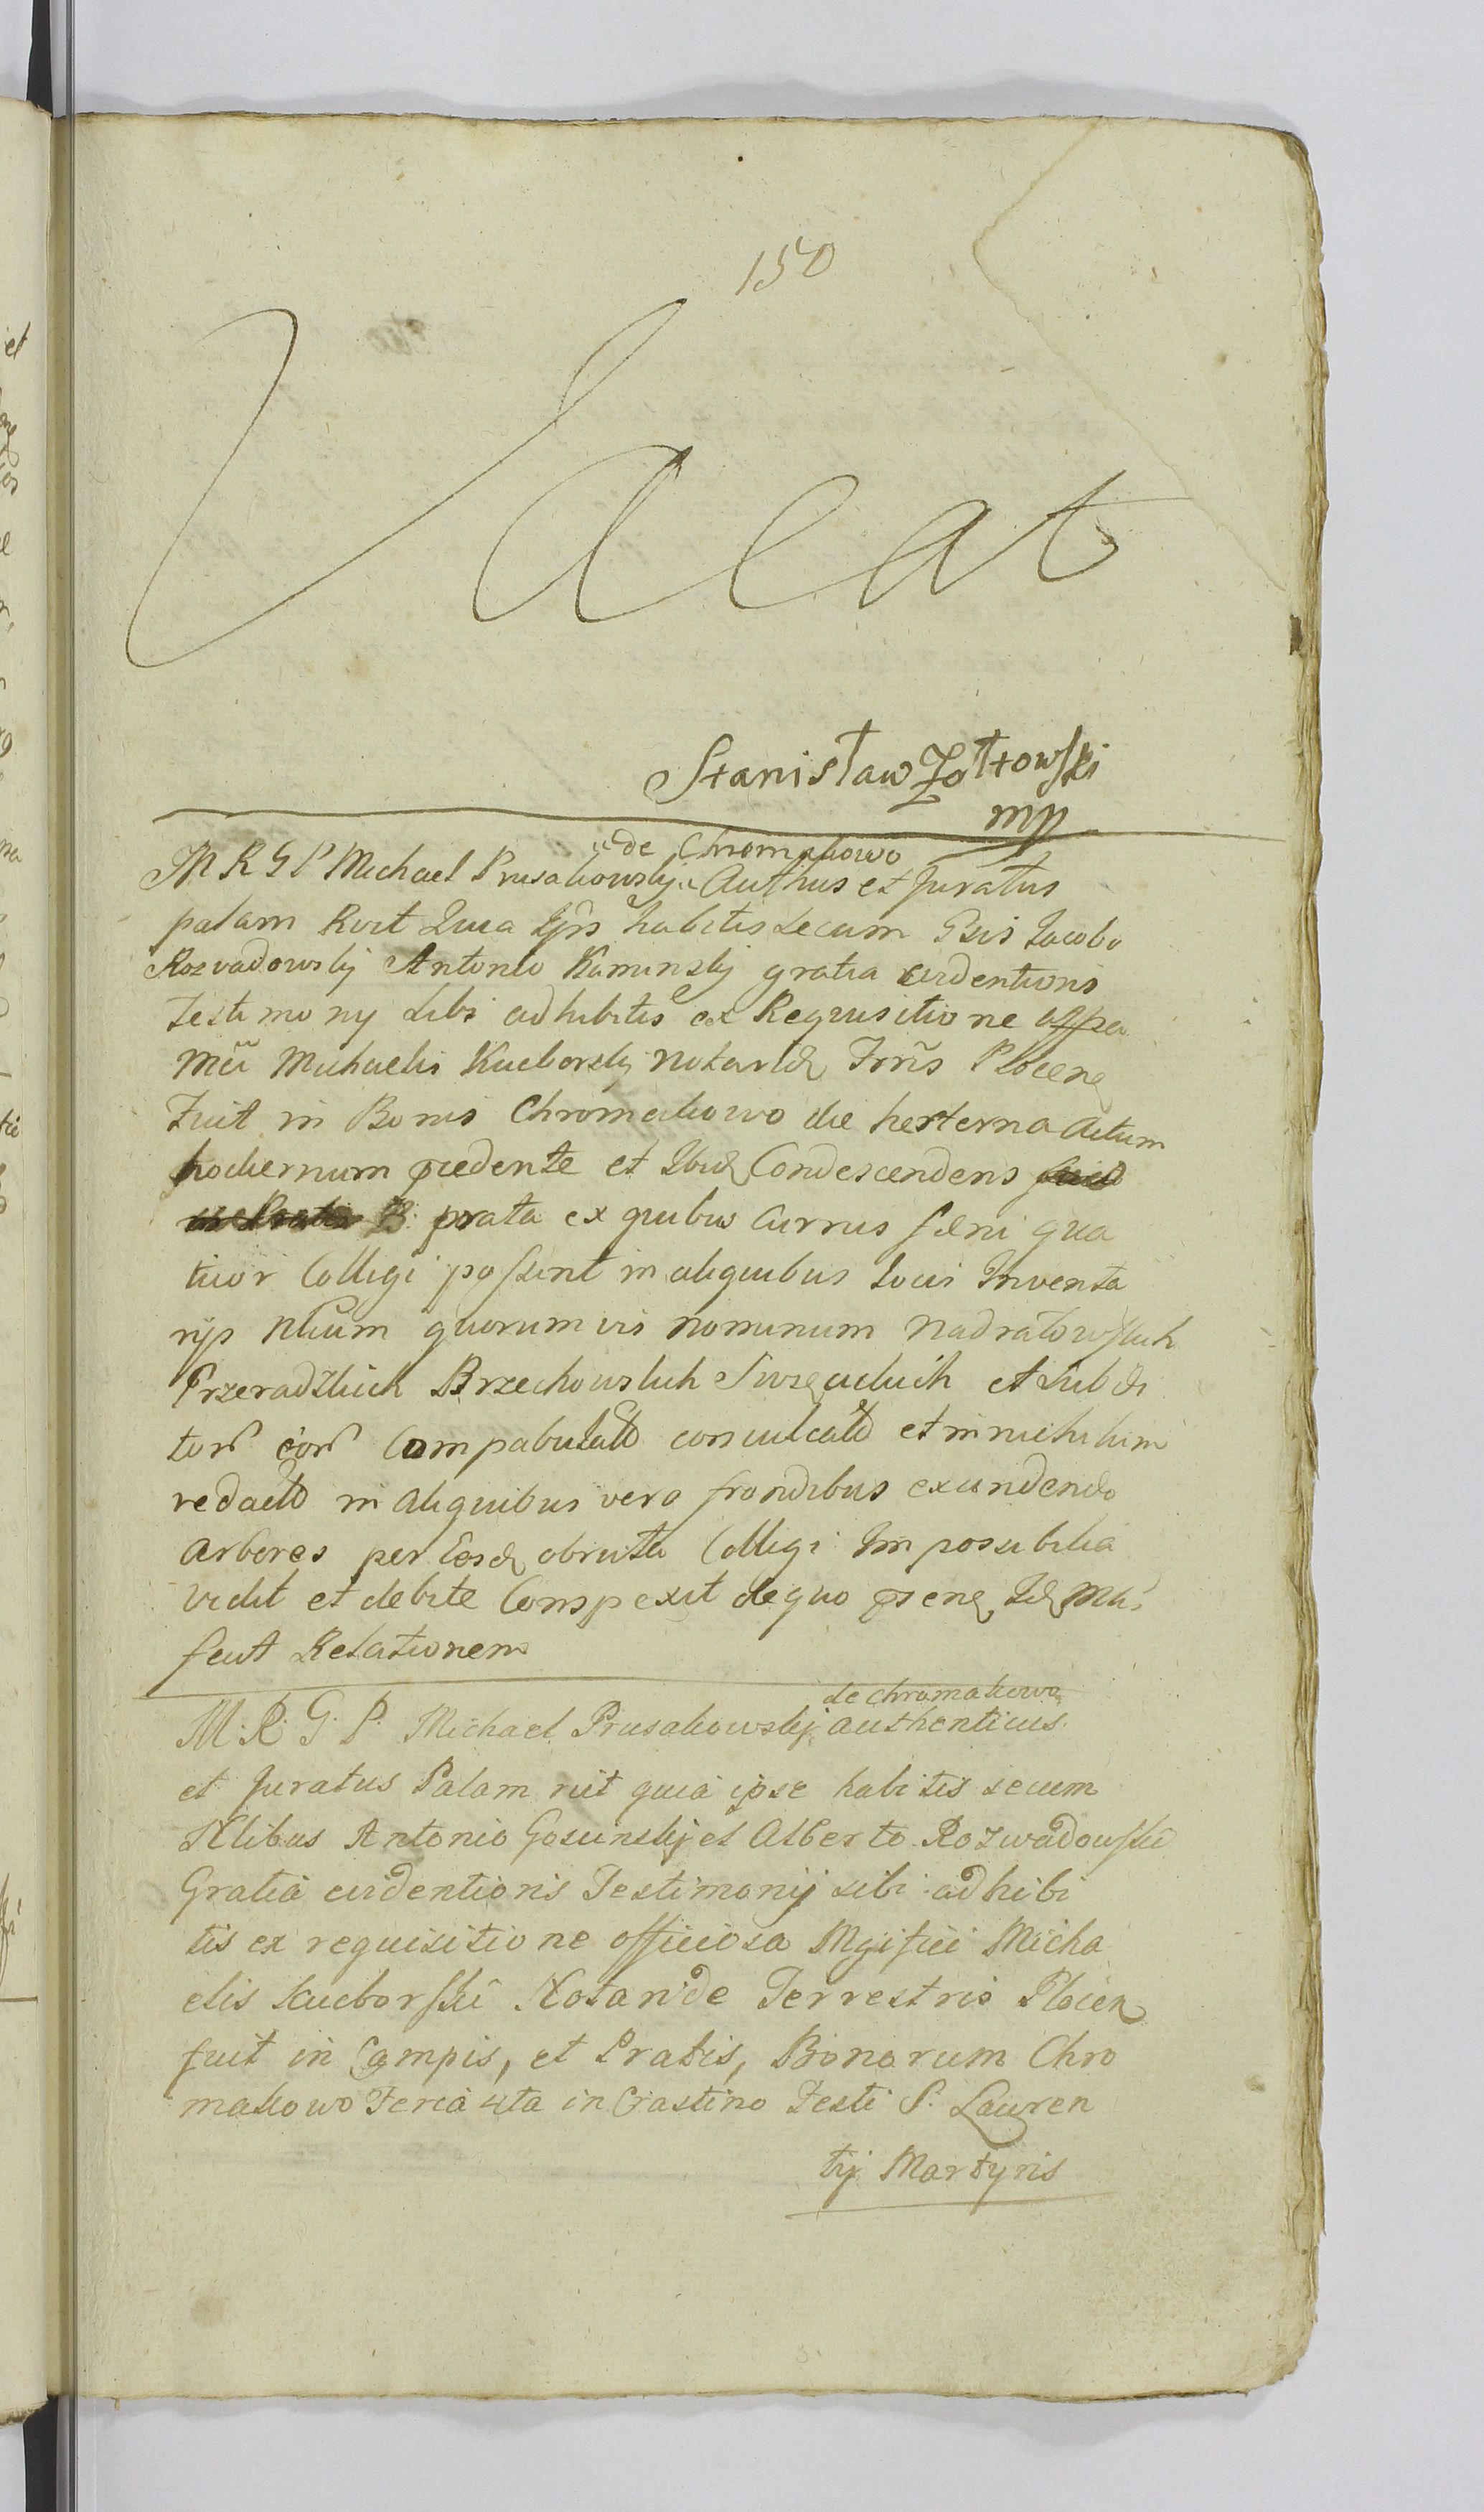 150
Vacat
Stanisław Zołtowski
mp
de Chromakowo
M R G P Michael Prusakowskij Authus et Juratus
palam Rvit Quia Ipse habitis secum Gsis Jacobo
Rozvadowskij Antonio Kaminskij gratia evidentioris
Testimonij sibi adhibitis ex Requisitione offsa
Mci Michaelis Kucborskij Notarid Trris Plocens
Fuit in Bonis Chromakowo die hesterna Actum
hodiernum pcedente et Ibid Condescendens
B: prata ex quibus Currus fœni qua
tuor Colligi possent in aliquibus locis Inventa
rijs quorumvis nominum Nadratowskich
Przeradzkich Brzechowskich et Subdi
tor eor Compabulata conculcata et in nichilum
redacta in aliquibus vero frondibus excindendo
Arbores per Eosd obruta Colligi Impossibilia
vidit et debite Conspexit de quo psens Id Min
fecit Relationem
de chromakowo
M. R. G. P. Michael Prusakowskij authenticus
et Juratus Palam rvit quia ipse habitis secum
Nlibus Antonio Gosunskij et Alberto Rozwadowski
Gratia evidentioris Testimonij sibi adhibi
tis ex requisitione officiosa Mgifici Micha
elis Kucborski Notaride Terrestris Plocen
fuit in Campis, et Pratis, Bonorum Chro
makowo Feria 4ta in Crastino Festi S. Lauren
tij Martyris